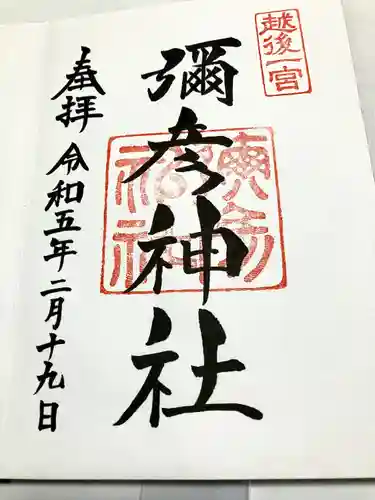 越後一宮
彌彦神社
奉拝
令和五年二月十九日